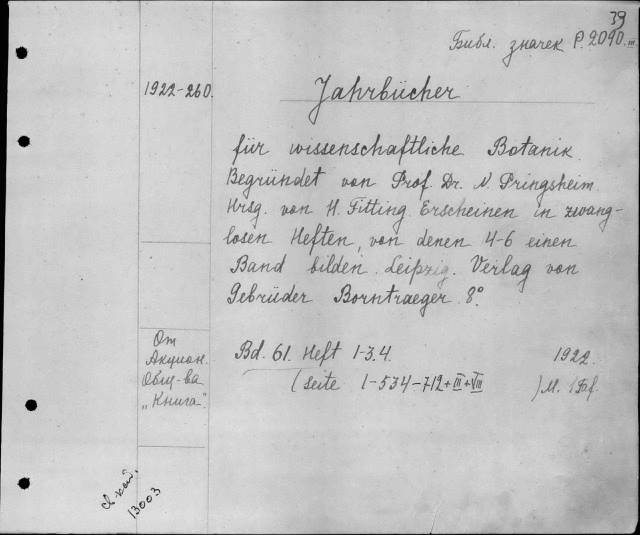 39
Библ. значек P. 2090.III
1922-260.
Jahrbücher
für wissenschaftliche Botanik.
Begründet von Prof. Dr. N. Pringsheim.
Hrsg. von H. Fitting. Erscheinen in zwang-
losen Heften, von denen 4-6 einen
Band bilden. Leipzig. Verlag von
Gebrüder Borntraeger. 8°.
От
Акцион.
Общ-ва
„Книга".
Bd. 61. Heft 1-3.4. 1922.
(Seite 1-534-712+III+VIII) M. 1 Taf.
13003